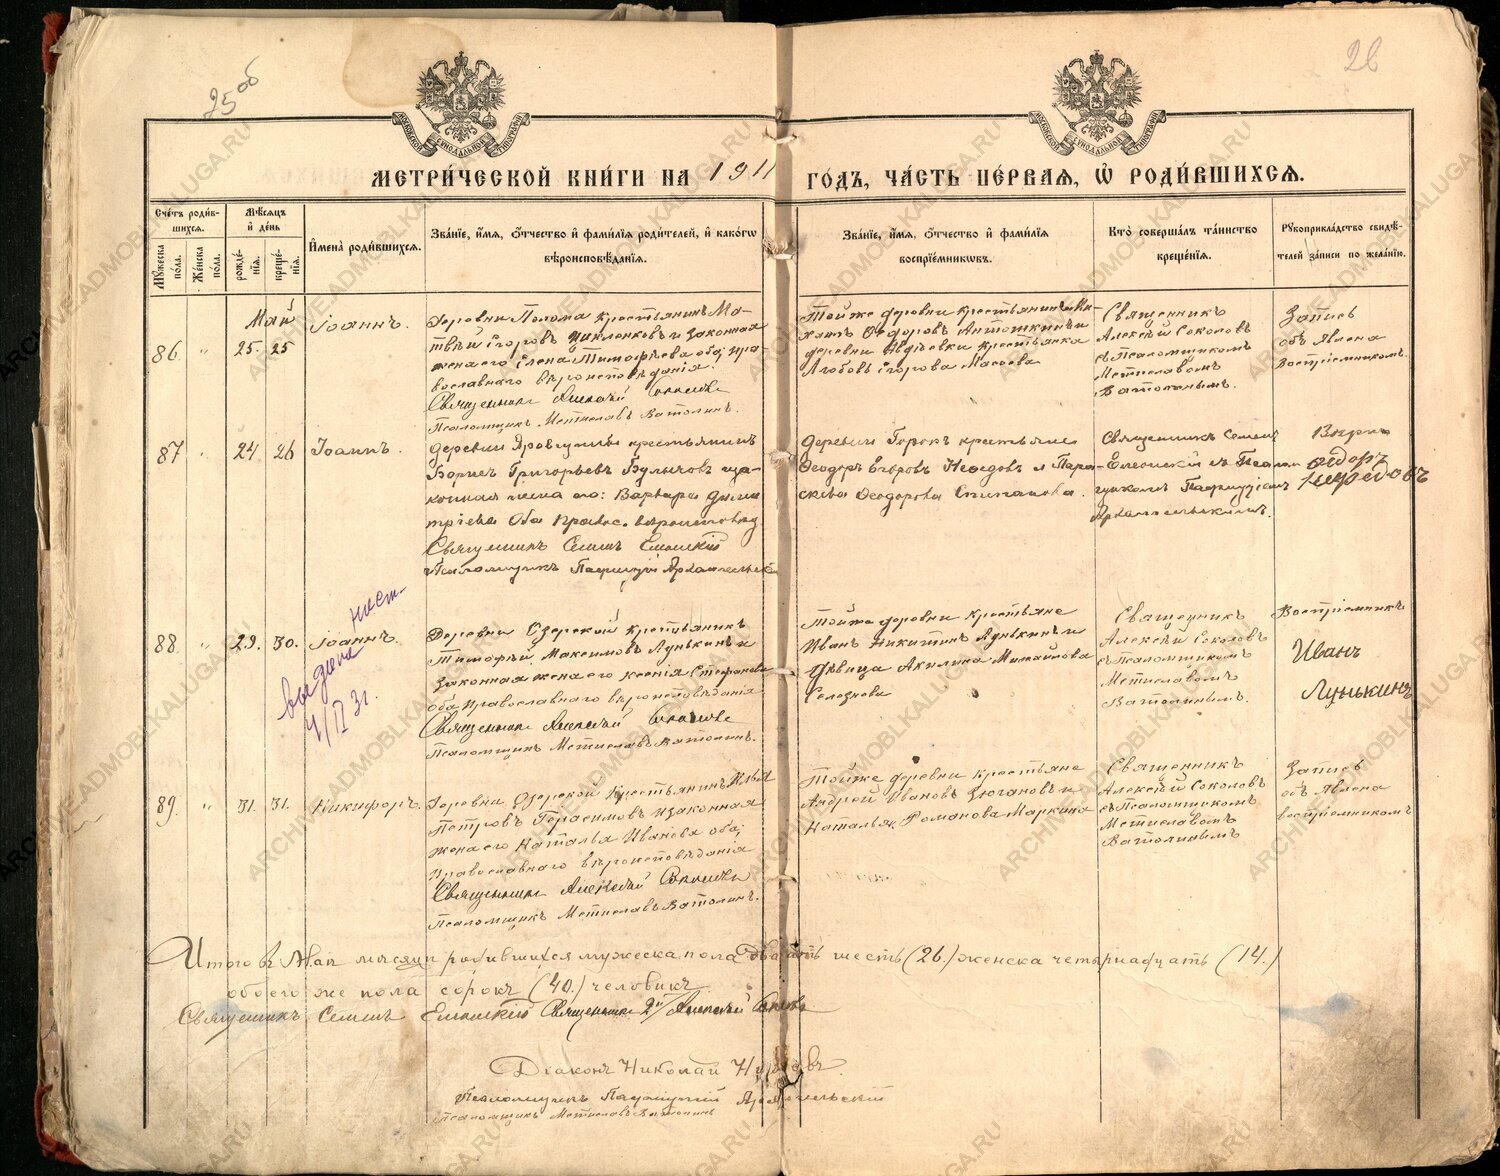 25 об
26
МОСКОВСКОЙ СѴНОДАЛЬНОЙ ТИПОГРАФІИ
МОСКОВСКОЙ СѴНОДАЛЬНОЙ ТИПОГРАФІИ
МЕТРИ́ЧЕСКОЙ КНИ́ГИ НА 1911 ГО́ДЪ, ЧА́СТЬ ПЕ́РВАѦ, Ѡ РОДИ́ВШИХСѦ.
Сче́тъ роди́в-
шихсѧ.
Мꙋ́жеска по́ла.
Же́нска по́ла.
Мѣ́сѧцъ
и҆ де́нь
рожде́-
нїѧ.
креще́-
нїѧ.
И҆мена̀ роди́вшихсѧ.
Зва́нїе, и҆́мѧ, ѻ҆́тчество и҆ фами́лїѧ роди́телей, и҆ како́гѡ
вѣроисповѣ́данїѧ.
Зва́нїе, и҆́мѧ, ѻ҆́тчество и҆ фами́лїѧ
воспрїе́мникѡвъ.
Кто̀ соверша́лъ та́инство
креще́нїѧ.
Рꙋкоприкла́дство свидѣ́-
телей за́писи по жела́нїю.
Май
86. " 25. 25 Іоаннъ.
Деревни Полома крестьянинъ Ма-
твѣй Егоровъ Цикленковъ и законная
жена его Елена Тимофѣева оба пра-
вославнаго вѣроисповѣданія.
Священникъ Алексѣй Соколовъ
Псаломщикъ Мстиславъ Ватолинъ.
Тойже деревни крестьянинъ
Ѳедоровъ Антошкинъ и
деревни Авдѣевки крестьянка
Любовь Егорова Масоева
Священникъ
Алексѣй Соколовъ
съ Псаломщикомъ
Мстиславомъ
Ватолинымъ.
Запись
объявлена
Воспріемникомъ.
87 " 24 26 Іоаннъ.
деревни крестьянинъ
Борисъ Григорьевъ Булычовъ и за-
конная жена его: Варвара Дими
тріева Оба правос. вѣроисповѣд
Священникъ Семенъ
Псаломщикъ Архангельскій
Деревни Горокъ крестьяне
Ѳеодоръ Егоровъ Нефедовъ и Пара-
скева Ѳеодорова Степанова.
Священникъ Семенъ
съ Псалом
щикомъ
Архангельскимъ.
Ѳедоръ
Нефедовъ
88. " 29. 30. Іоаннъ.
выдана
4/II 31.
Деревни Озерской крестьянинъ
Тимофѣй Максимовъ Лунькинъ и
законная жена его Ксенія Стефанова
оба православнаго вѣроисповѣданія
Священникъ Алексѣй Соколовъ
Псаломщикъ Мстиславъ Ватолинъ.
Тойже деревни крестьяне
Иванъ Никитинъ Лунькинъ и
дѣвица Акилина Михайлова
Селезнева
Священникъ
Алексѣй Соколовъ
съ Псаломщикомъ
Мстиславомъ
Ватолинымъ.
Воспріемникъ
Иванъ
Лунькинъ
89. " 31. 31. Никифоръ.
Деревни Озерской крестьянинъ Илья
Петровъ Герасимовъ и законная
жена его Наталья Иванова оба
Православнаго вѣроисповѣданія
Священникъ Алексѣй Соколовъ
Псаломщикъ Мстиславъ Ватолинъ.
Тойже деревни крестьяне
Андрей Ивановъ Зюгановъ и
Наталья Романова Маркина
Священникъ
Алексѣй Соколовъ
съ Псаломщикомъ
Мстиславомъ
Ватолинымъ
Запись
объявлена
воспріемникомъ
Итого въ Маѣ мѣсяцѣ родившихся мужеска пола двадцать шесть (26.) женска четырнадцать (14.)
обоего же пола сорокъ (40.) человѣкъ.
Священникъ Семенъ Священникъ 2й Алексѣй Соколовъ
Діаконъ Николай
Псаломщикъ Архангельскій
Псаломщикъ Мстиславъ Ватолинъ
ARCHIVE.ADMOBLKALUGA.RU